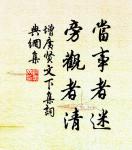 當事者迷
旁觀者清
增廣贤文下集詞
典網集